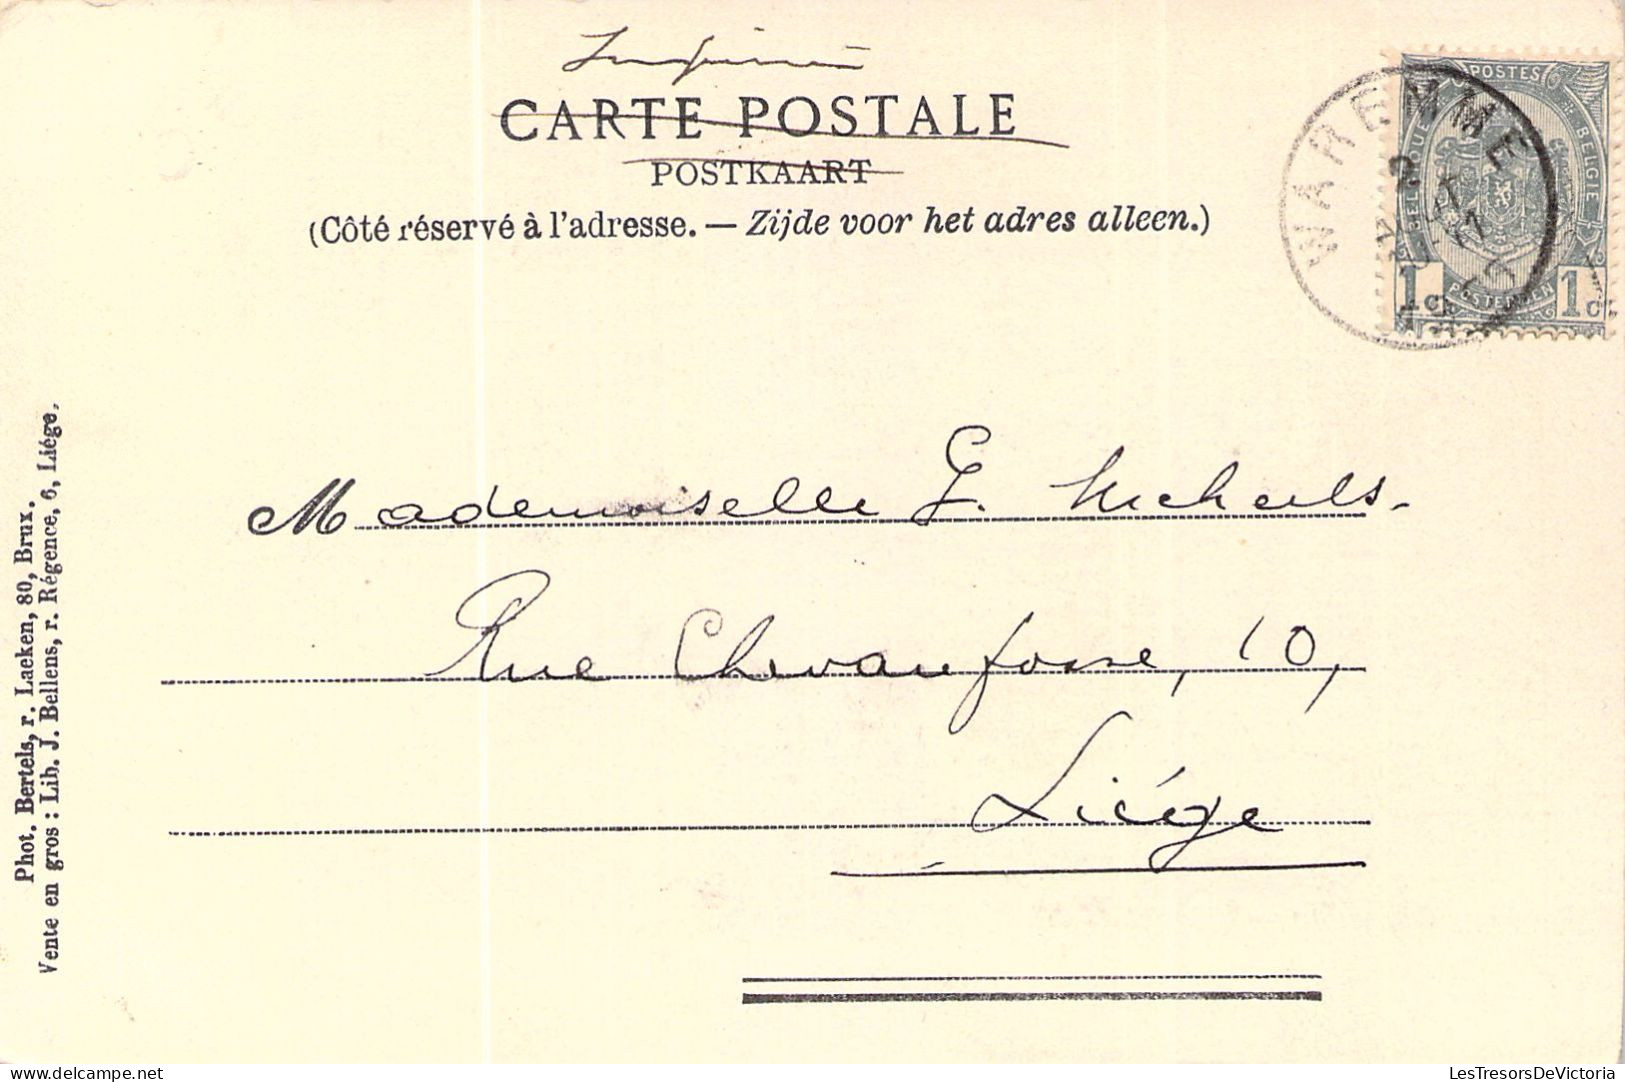 Imprimé
CARTE POSTALE
POSTKAART
(Côté réservé à l'adresse. — Zijde voor het adres alleen.)
WAREMME
POSTES
BELGIQUE
BELGIE
1c
POSTERIJEN
1c
Mademoiselle G.
Rue Chevaufosse, 10,
Liége
Phot. Bertels, r. Laeken, 80, Brux.
Vente en gros : Lib. J. Bellens, r. Régence, 6, Liége.
LesTresorsDeVictoria
delcampe.net